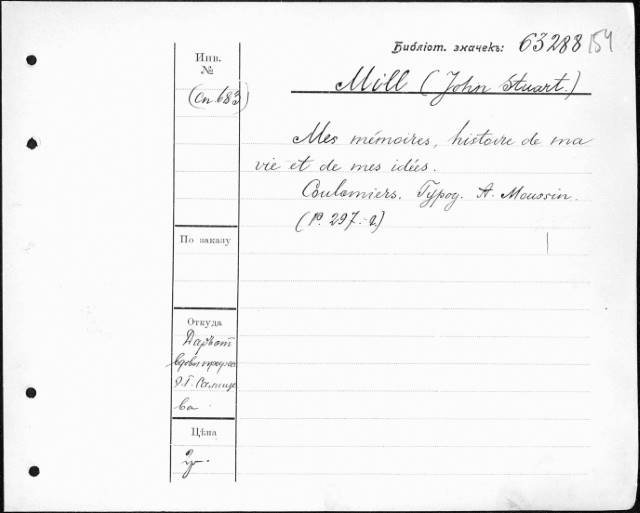 Библіот. значекъ: 63288 154
Инв.
№
(Оп. 683)
Mill (John Stuart.)
Mes mémoires, histoire de ma
vie et de mes idées.
Coulomiers. Typog. A. Moussin.
(P. 297.-2)
По заказу
Откуда
Даръ от
вдовы професс
Э.Г. Салище
ва
Цѣна